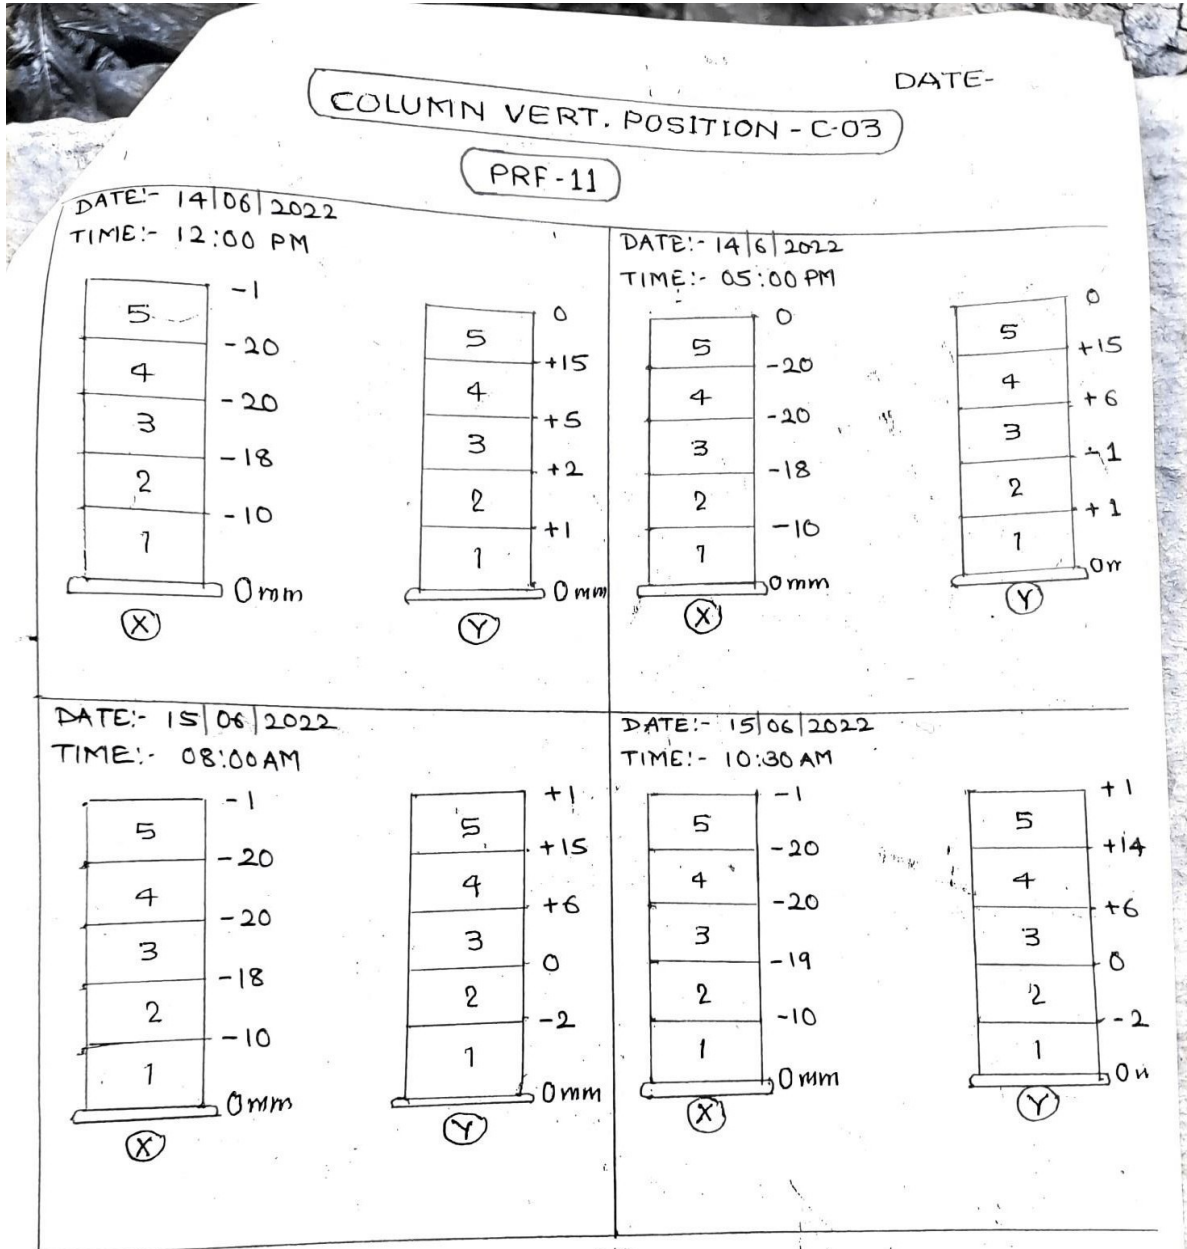 DATE-
COLUMN VERT. POSITION - C-03
PRF-11
DATE:- 14/06/2022
TIME:- 12:00 PM
-1
5
-20
4
-20
3
-18
2
-10
1
0mm
X
0
5
+15
4
+5
3
+2
2
+1
1
0mm
Y
DATE:- 14/6/2022
TIME:- 05:00 PM
0
5
-20
4
-20
3
-18
2
-10
1
0mm
X
0
5
+15
4
+6
3
2
+1
1
0m
Y
DATE:- 15/06/2022
TIME:- 08:00 AM
-1
5
-20
4
-20
3
-18
2
-10
1
0mm
X
+1
5
+15
4
+6
3
0
2
-2
1
0mm
Y
DATE:- 15/06/2022
TIME:- 10:30 AM
-1
5
-20
4
-20
3
-19
2
-10
1
0mm
X
+1
5
+14
4
+6
3
0
2
-2
1
0m
Y